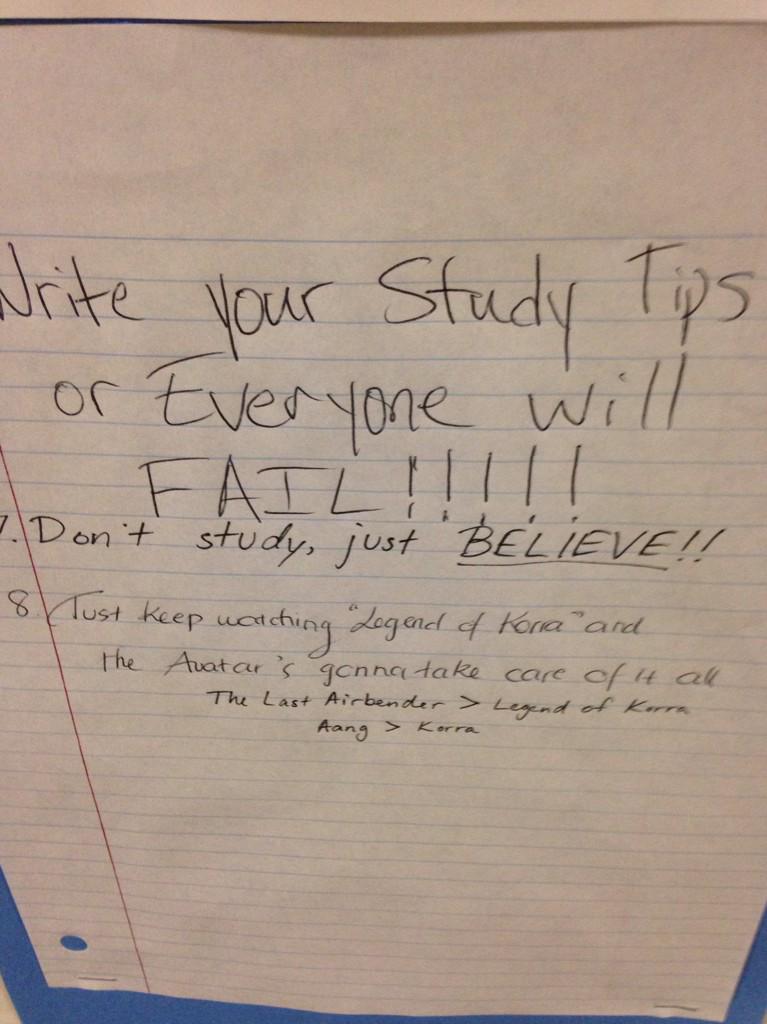 Write your Study Tips
or Everyone will
FAIL!!!!!!
7. Don't study, just BELIEVE!!
8. Just keep watching "Legend of Korra" and
the Avatar's gonna take care of it all
The Last Airbender > Legend of Korra
Aang > Korra